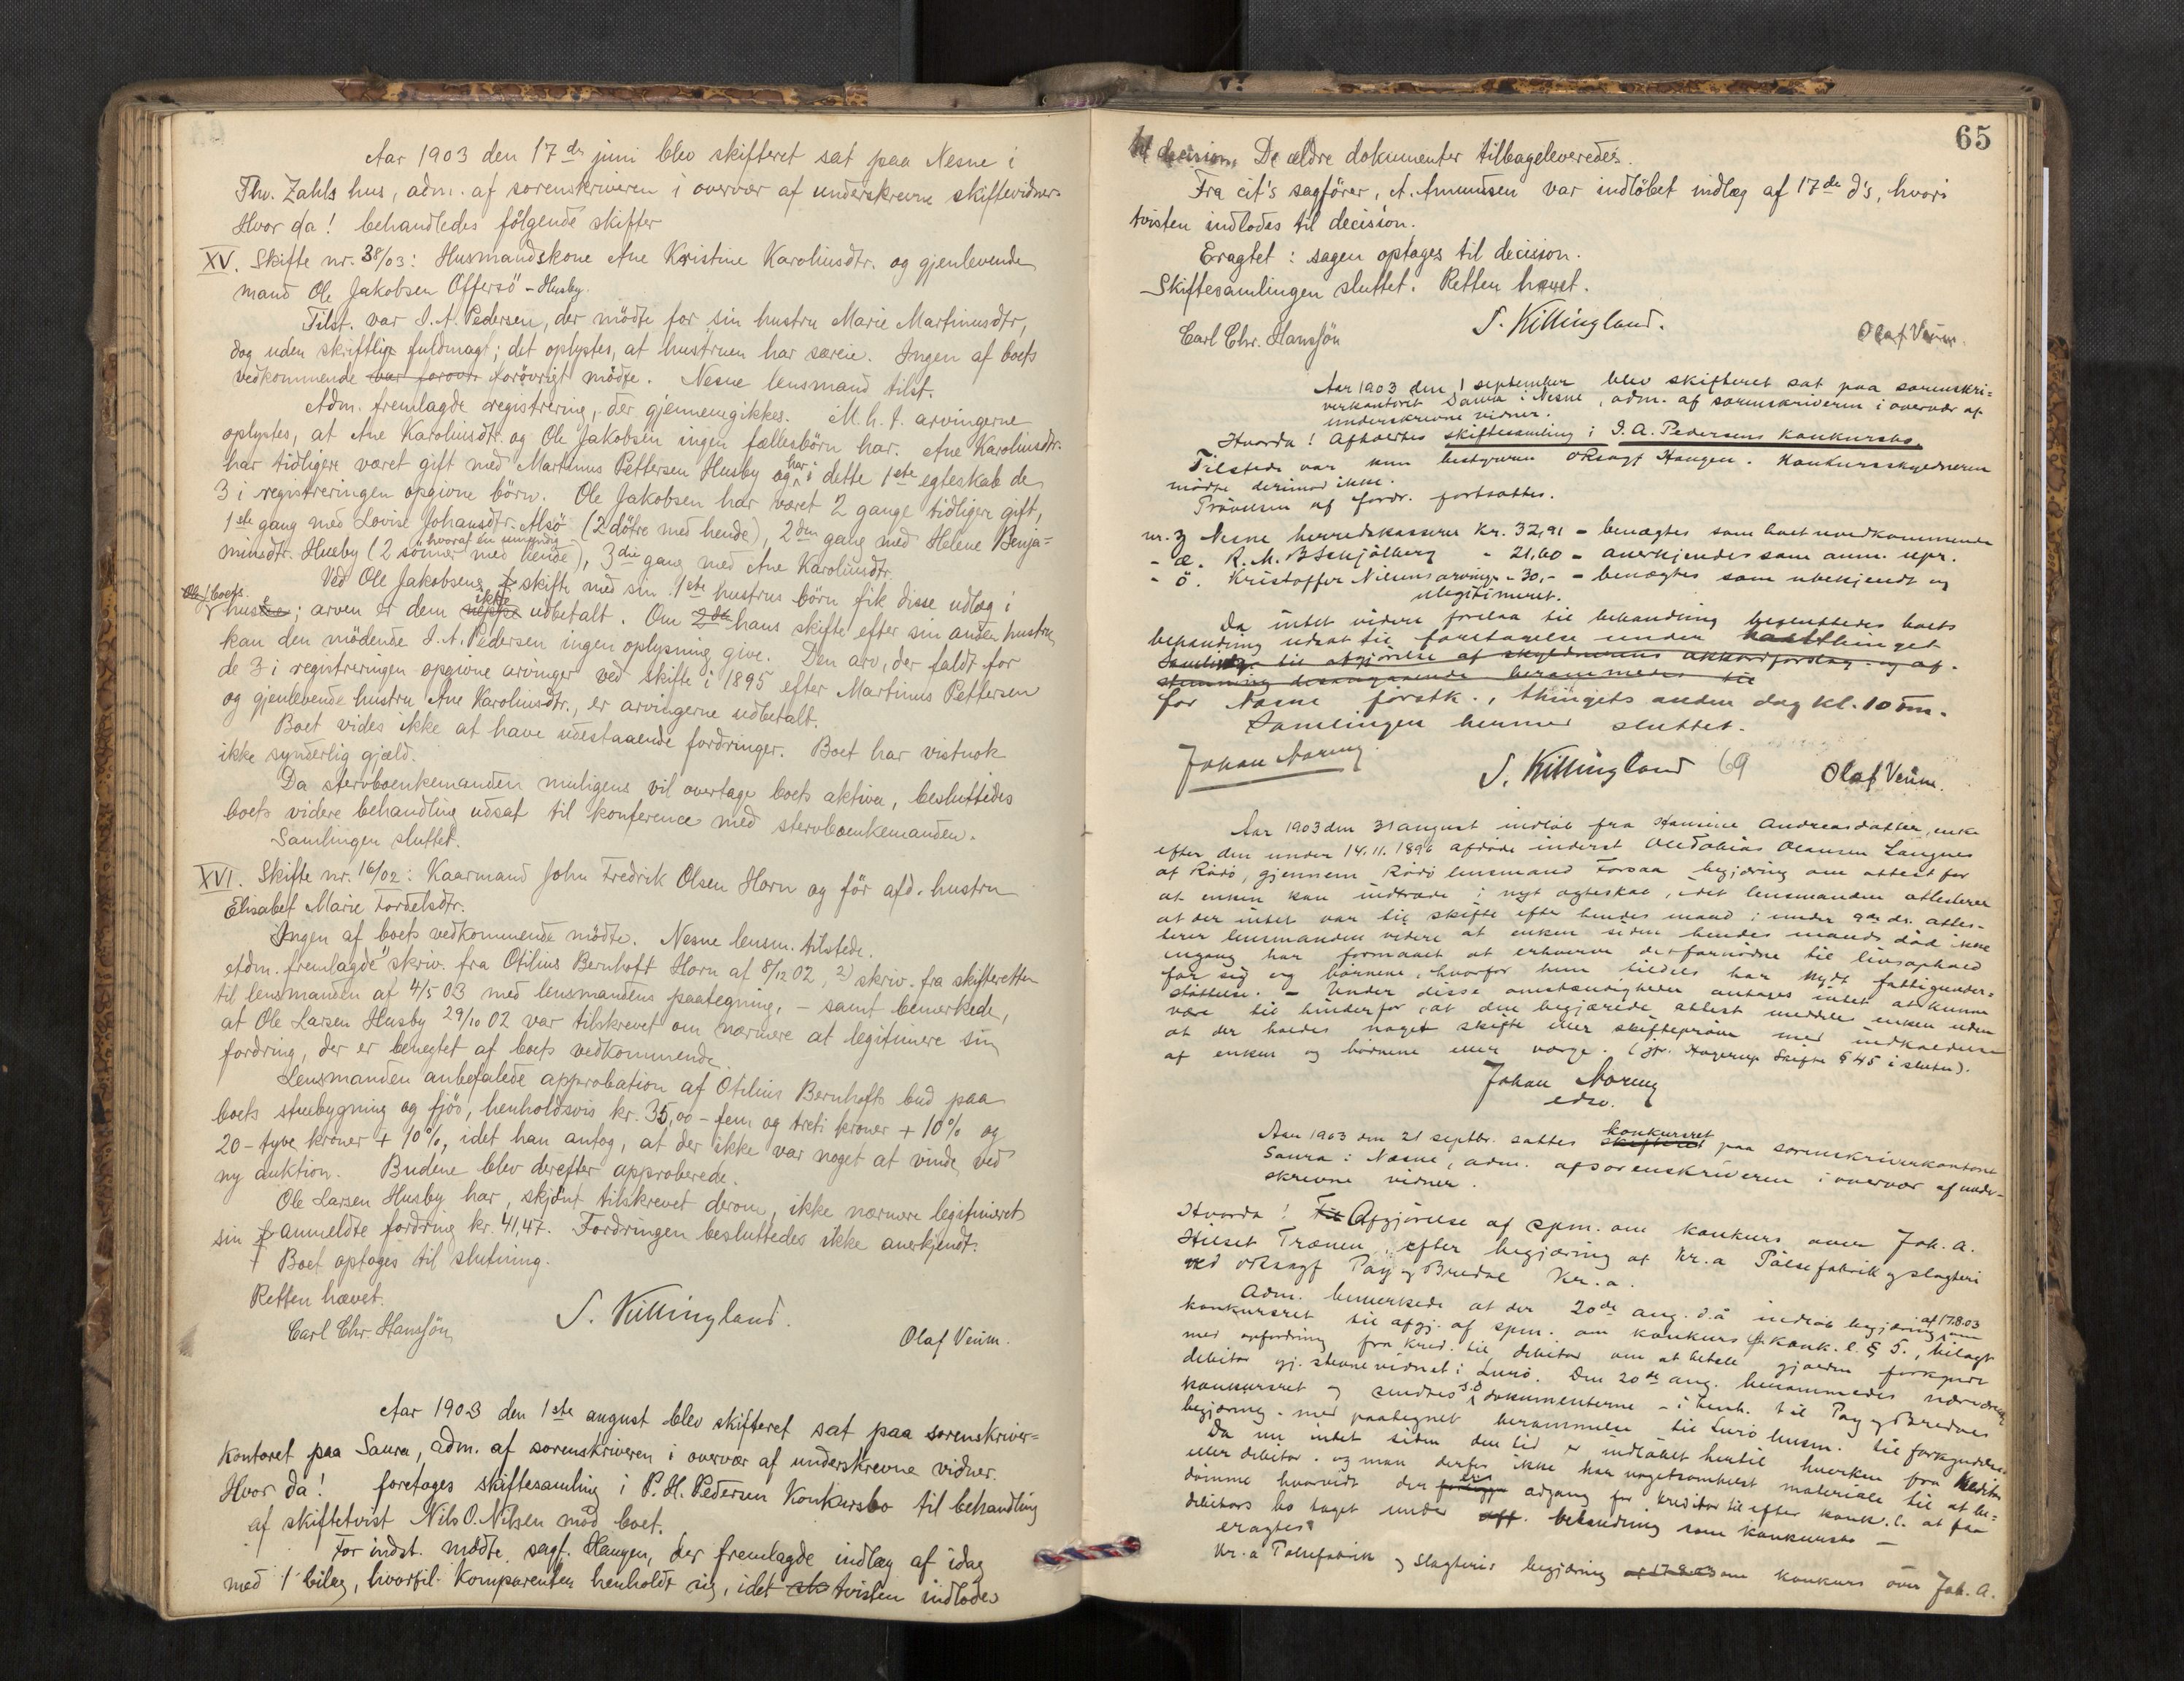 Aar 1903 den 17de juni blev skifteret sat paa Nesne i
Thv. Zahls hus, adm. af sorenskriveren i overvær af underskrevne skiftevidner.
Hvor da! behandledes følgende skifter
XV. Skifte nr. 38/03: Husmandskone Ane Kristine Karoliusdtr. og gjenlevende
mand Ole Jakobsen Offersö - Husby.
Tilst. var I. A. Pedersen, der mödte for sin hustru Marie Martinusdtr,
dog uden skriftlig fuldmagt; det oplystes, at hustruen har særeie. Ingen af boets
vedkommende var forövr. forövrigt mödte. Nesne lensmand tilst.
Adm. fremlagde registrering, der gjennemgikkes. M.h.t. arvingerne
oplystes, at Ane Karoliusdtr. og Ole Jakobsen ingen fællesbörn har. Ane Karoliusdtr.
har tidligere været gift med Martinus Pettersen Husby og har i dette 1ste egteskab de
3 i registreringen opgivne börn. Ole Jakobsen har været 2 gange tidligere gift,
1ste gang med Lovise Johansdtr. Alsö (2 döttre med hende), 2den gang med Helene Benja=
minsdtr. Husby (2 sönner hvoraf en umyndig med hende), 3die gang med Ane Karoliusdtr.
Ved Ole Jakobsens skifte med sin 1ste hustrus börn fik disse udlæg i
Ole J boets huse; arven er dem ikke udbetalt. Om 2det hans skifte efter sin anden hustru
kan den mödende I. A. Pedersen ingen oplysning give. Den arv, der faldt for
de 3 i registreringen opgivne arvinger ved skifte i 1895 efter Martinus Pettersen
og gjenlevende hustru Ane Karoliusdtr., er arvingerne udbetalt.
Boet vides ikke at have udestaaende fordringer. Boet har vistnok
ikke synderlig gjæld.
Da stervboenkemanden muligens vil overtage boets aktiva, besluttedes
boets videre behandling udsat til konference med stervboenkemanden.
Samlingen sluttet.
XVI. Skifte nr. 16/02: Kaarmand John Fredrik Olsen Horn og för afd. hustru
Elisabet Marie Tordelsdtr.
Ingen af boets vedkommende mödte. Nesne lensm. tilstede.
Adm. fremlagde 1) skriv. fra Otilius Bernhoft Horn af 8/12 02, 2) skriv. fra skifteretten
til lensmanden af 4/5 03 med lensmandens paategning, - samt bemerkede,
at Ole Larsen Husby 29/10 02 var tilskrevet om nærmere at legitimere sin
fordring, der er benegtet af boets vedkommende.
Lensmanden anbefalede approbation af Otilius Bernhofts bud paa
boets stuebygning og fjös, henholdsvis kr. 35,00 - fem og treti kroner + 10% og
20 - tyve kroner + 10%, idet han antog, at der ikke var noget at vinde ved
ny auktion. Budene blev derefter approberede.
Ole Larsen Husby har, skjönt tilskrevet derom, ikke nærmere legitimeret
sin anmeldte fordring kr. 41,47. Fordringen besluttedes ikke anerkjendt.
Boet optages til slutning.
Retten hævet.
Carl Chr. Hansjön S. Killingland. Olaf Veum.
Aar 1903 den 1ste august blev skifteret sat paa sorenskriver=
kontoret paa Saura, adm. af sorenskriveren i overvær af underskrevne vidner.
Hvor da! foretoges skiftesamling i P. H. Pedersen Konkursbo til behandling
af skiftetvist Nils O. Nilsen mod boet.
For indst. mödte sagf. Haugen, der fremlagde indlæg af idag
med 1 bilag, hvortil komparenten henholdt sig, idet tvisten indlodes
65
til decision. De ældre dokumenter tilbageleveredes.
Fra cit's sagförer, A. Amundsen var indlöbet indlæg af 17de d's, hvori
tvisten indlodes til decision.
Eragtet: sagen optages til decision.
Skiftesamlingen sluttet. Retten hævet.
Carl Chr. Hansjön S. Killingland. Olaf Veum.
Aar 1903 den 1 september blev skifteret sat paa sorenskri=
verkontoret Saura i Nesne, adm. af sorenskriveren i overvær af
underskrevne vidner.
Hvorda! Afholdtes skiftesamling i I. A. Pedersens konkursbo.
Tilstede var kun bestyreren oRsagf Haugen. Konkursskyldneren
mödte derimod ikke.
Prövelsen af fordr. fortsattes.
nr. z Nesne herredskasserer kr. 32,91 - benægtes som boet uvedkommende
- æ. R. M. B Schjölberg - 21,60 - anerkjendes som anm. upr.
- ö. Kristoffer Nilsens arvinger - 30,- - benægtes som ubekjendt og
ulegitimeret.
Da intet videre forelaa til behandling besluttedes boets
behandling udsat til foretagelse under höstthinget
Samling til afgjörelse af skyldnerens akkordforslag og af-
stemning desangaaende berammedes til
for Nesne förstk., thingets anden dag kl. 10 fm.
Samlingen hermed sluttet.
Johan Noring S. Killingland 69 Olaf Veum.
Aar 1903 den 31 august indlöb fra Hansine Andreasdatter, enke
efter den under 14.11.1896 afdöde inderst Ole Tobias Olausen Langnes
af Rödö, gjennem Rödö lensmand Forsaa begjæring om attest for
at enken kan indtræde i nyt ægteskab, idet lensmanden attesterer
at der intet var til skifte efter hendes mand; under 9de ds. attes-
terer lensmanden videre at enken siden hendes mands död ikke
engang har formaaet at erhverve det fornödne til livsophold
for sig og börnene, hvorfor hun tildels har nydt fattigunder=
stöttelse. - Under disse omstændigheder antages intet at kunne
være til hinder for, at den begjærede attest meddeles enken uden
at der holdes noget skifte eller skiftepröve med indkaldelse
af enken og börnene eller værge. (jfr. Hagerup Skifte § 45 i slutn).
Johan Noring
edsv.
Aar 1903 den 21 septbr. sattes skifteret konkursret paa sorenskriverkontoret
Saura i Nesne, adm. af sorenskriveren i overvær af under-
skrevne vidner.
Hvorda! Til Afgjörelse af spm. om konkurs over Joh. A.
Hilset Trænen efter begjæring af Kr.a Pölsefabrik og slagteri
ved oRsagf Pay og Bredal Kr.a.
Adm. bemerkede at der 20de aug. d.å indlöb begjæring af 17.8.03 om
konkursret til afgj. af spm. om konkurs jfr. konk. l. § 5., bilagt
med opfordring fra kred. til debitor om at betale gjælden forkyndt
debitor gj. stevnevidnet i Lurö. Den 20de aug. berammedes nærværende
konkursret og sendtes s.d. dokumenterne - i henh. til Pay og Bredals
begjæring - med paategnet berammelse til Lurö lensm. til forkyndelse.
Da nu intet siden den tid er indlöbet hertil hverken fra kreditor
eller debitor og man derfor ikke har nogetsomhelst materiale til at be=
dömme hvorvidt der er adgang for kreditor til efter konk. l. at faa
debitors bo taget under behandling som konkursbo -
eragtes
Kr.a Pölsefabrik og Slagteris begjæring af 17.8.03 om konkurs over Joh. A.